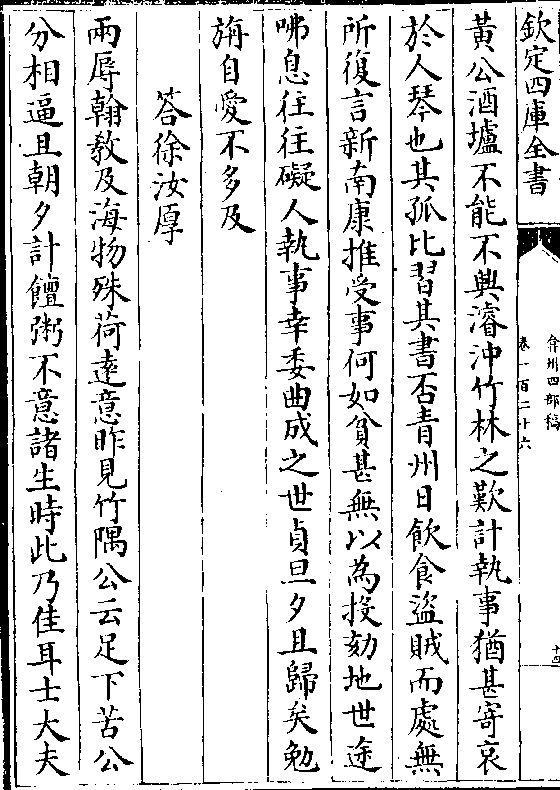 欽定四庫全書
弇州四部稿
卷一百二十六
十四
黃公酒壚不能不興濬沖竹林之歎計執事猶甚寄哀
於人琴也其孤比習其書否青州日飲食盜賊而處無
所復言新南康推受事何如貧甚無以為投劾地世途
咈息往往礙人執事幸委曲成之世貞旦夕且歸矣勉
旃自愛不多及
答徐汝厚
兩辱翰教及海物殊荷逺意昨見竹隅公云足下苦公
分相逼且朝夕計饘粥不意諸生時此乃佳耳士大夫